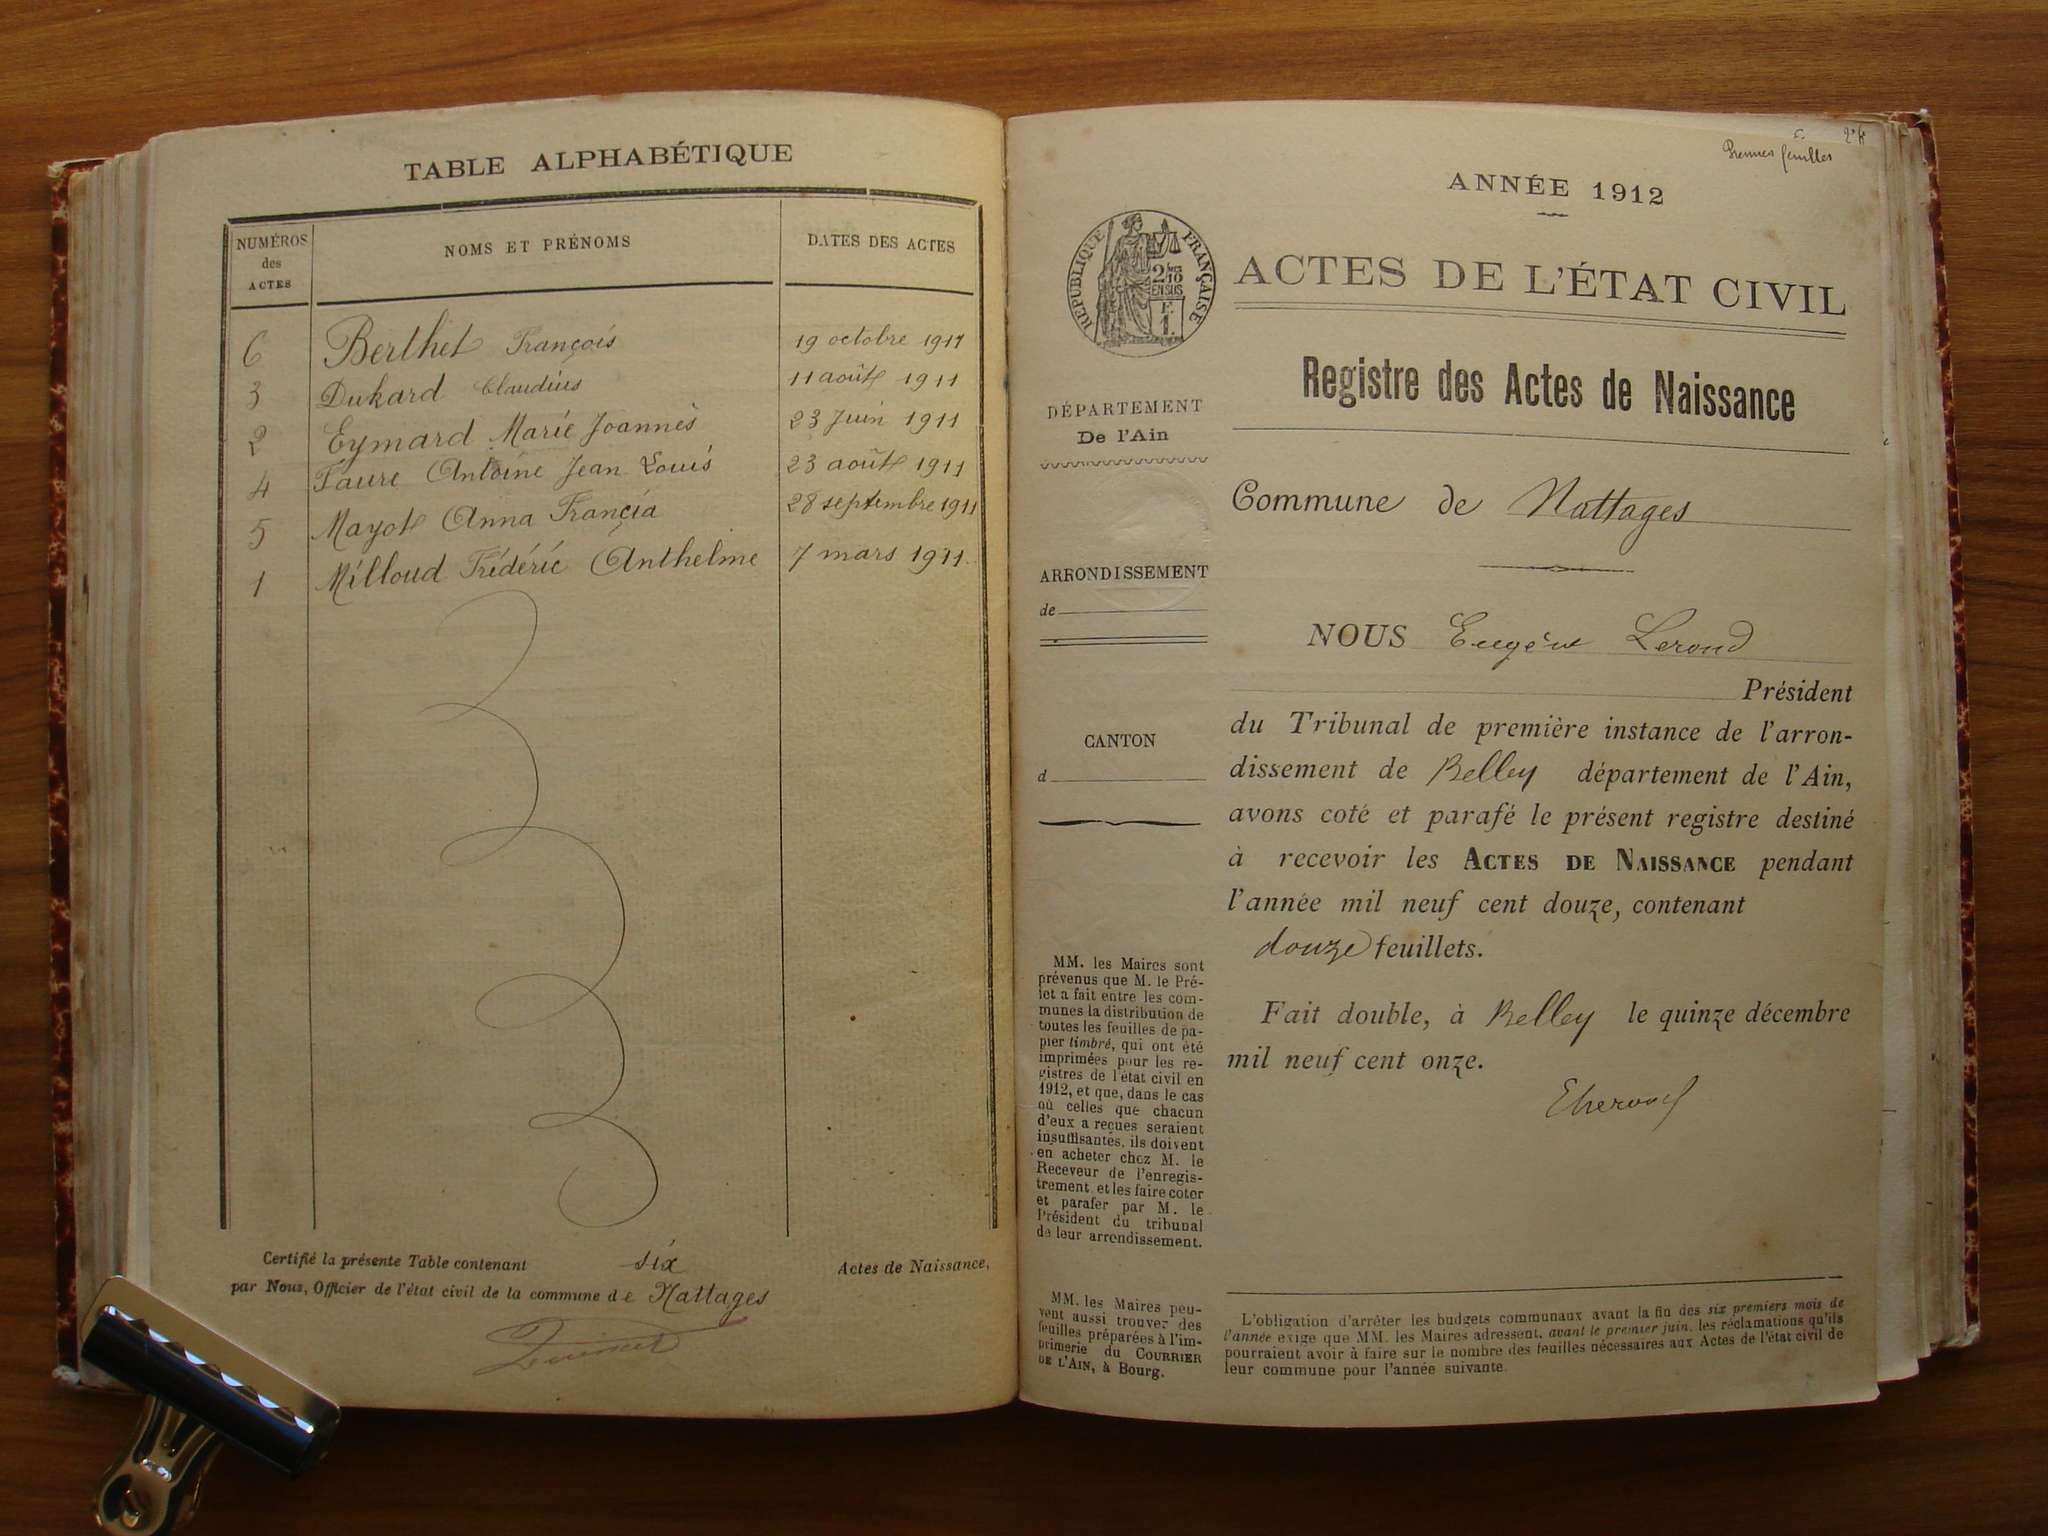 TABLE ALPHABÉTIQUE
NUMÉROS
des
ACTES
NOMS ET PRÉNOMS
DATES DES ACTES
6 Berthet François 19 octobre 1911
3 Dukard Claudius 11 août 1911
2 Eymard Marie Joannès 23 Juin 1911
4 Faure Antoine Jean Louis 23 août 1911
5 Mayot Anna Francia 28 septembre 1911
1 Milloud Frédéric Anthelme 7 mars 1911.
Certifié la présente Table contenant six Actes de Naissance,
par Nous, Officier de l'état civil de la commune de Nattages
Premier feuillet
ANNÉE 1912
RÉPUBLIQUE FRANÇAISE
2/10
EN SUS
F.
1.
ACTES DE L'ÉTAT CIVIL
Registre des Actes de Naissance
DÉPARTEMENT
De l'Ain
Commune de Nattages
ARRONDISSEMENT
de
CANTON
d
NOUS Eugène Lerond
Président
du Tribunal de première instance de l'arron-
dissement de Belley département de l'Ain,
avons coté et parafé le présent registre destiné
à recevoir les ACTES DE NAISSANCE pendant
l'année mil neuf cent douze, contenant
douze feuillets.
Fait double, à Belley le quinze décembre
mil neuf cent onze.
MM. les Maires sont
prévenus que M. le Pré-
fet a fait entre les com-
munes la distribution de
toutes les feuilles de pa-
pier timbré, qui ont été
imprimées pour les re-
gistres de l'état civil en
1912, et que, dans le cas
où celles que chacun
d'eux a reçues seraient
insuffisantes, ils doivent
en acheter chez M. le
Receveur de l'enregis-
trement, et les faire coter
et parafer par M. le
Président du tribunal
de leur arrondissement.
MM. les Maires peu-
vent aussi trouver des
feuilles préparées à l'im-
primerie du COURRIER
DE L'AIN, à Bourg.
L'obligation d'arrêter les budgets communaux avant la fin des six premiers mois de
l'année exige que MM. les Maires adressent, avant le premier juin, les réclamations qu'ils
pourraient avoir à faire sur le nombre des feuilles nécessaires aux Actes de l'état civil de
leur commune pour l'année suivante.